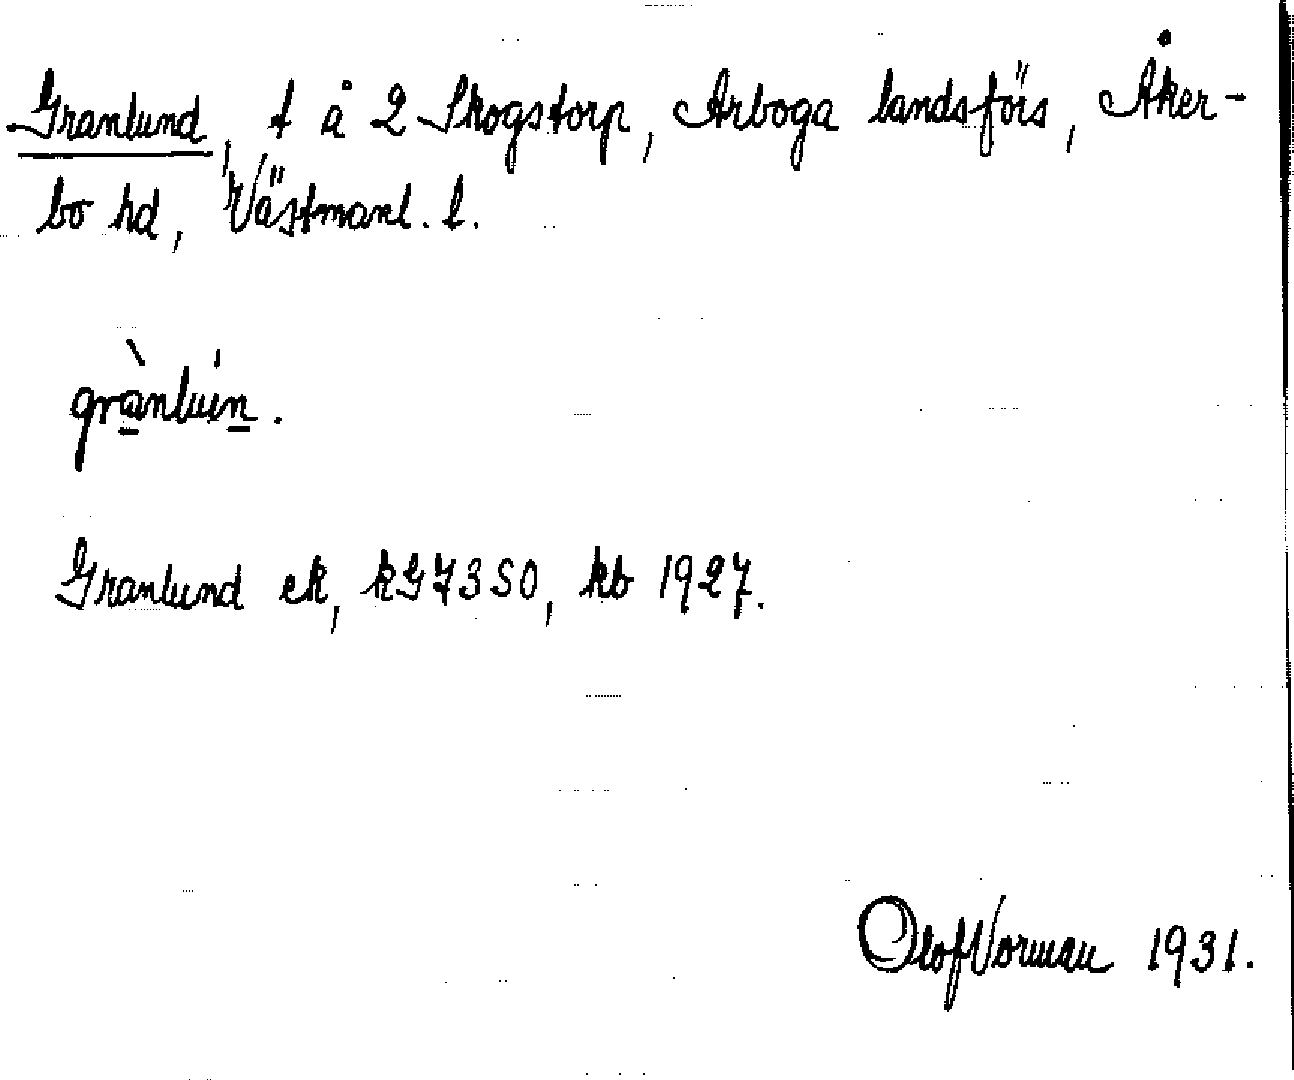 Granlund, t å 2 Skogstorp, Arboga landsförs, Åker-
bo hd, Västmanl. l.
grànluń.
Granlund ek, kG7350, kb 1927.
Olof Vorman 1931.